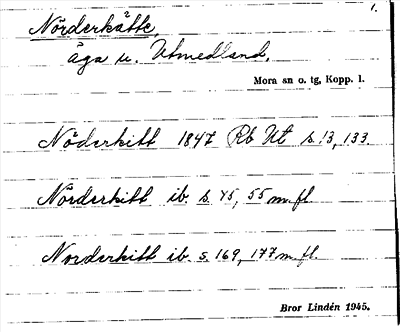 1.
Nörderkätte,
äga u. Utmedland.
Mora sn o. tg, Kopp. l.
Nöderkitt 1847 Rb Ut s. 13, 133.
Nörderkitt ib. s. 45, 55 m.fl.
Norderkitt ib. s. 169, 177 m.fl.
Bror Lindén 1945.